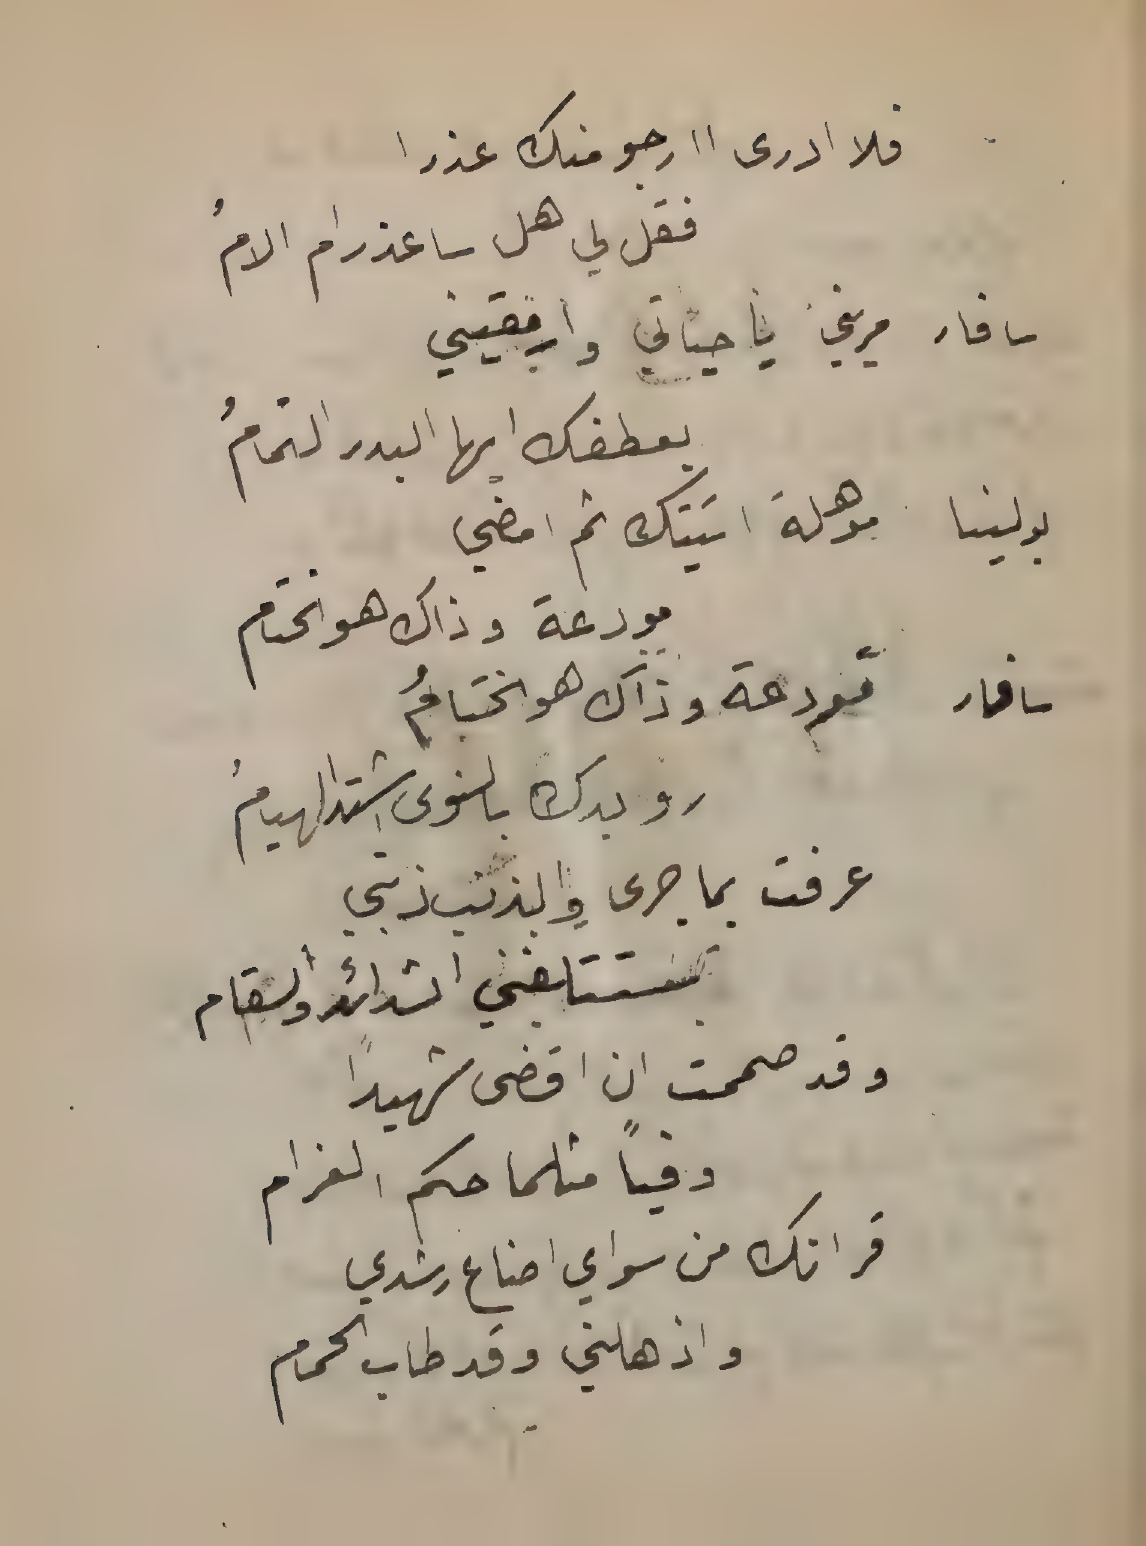 فلا ادرى اارجو منك عذرا
فقل لي هل ساعذر ام الامُ
سافار مريني يا حياتي وارفقيني
بعطفك ايها البدر التمامُ
بولينا موهلة اتيتك ثم امضي
مودعة وذاك هو الختام
سافار مودعة وذاك هو الختامُ
رويدك بالنوى اشتد الهيامُ
عرفت بما جرى والذنب ذنبي
الشدائد والسقام
وقد صممت ان اقضى شهيداً
وفياً مثلما حكم الغرام
قرانك من سواي اضاع رشدي
واذهلني وقد طاب الحمام